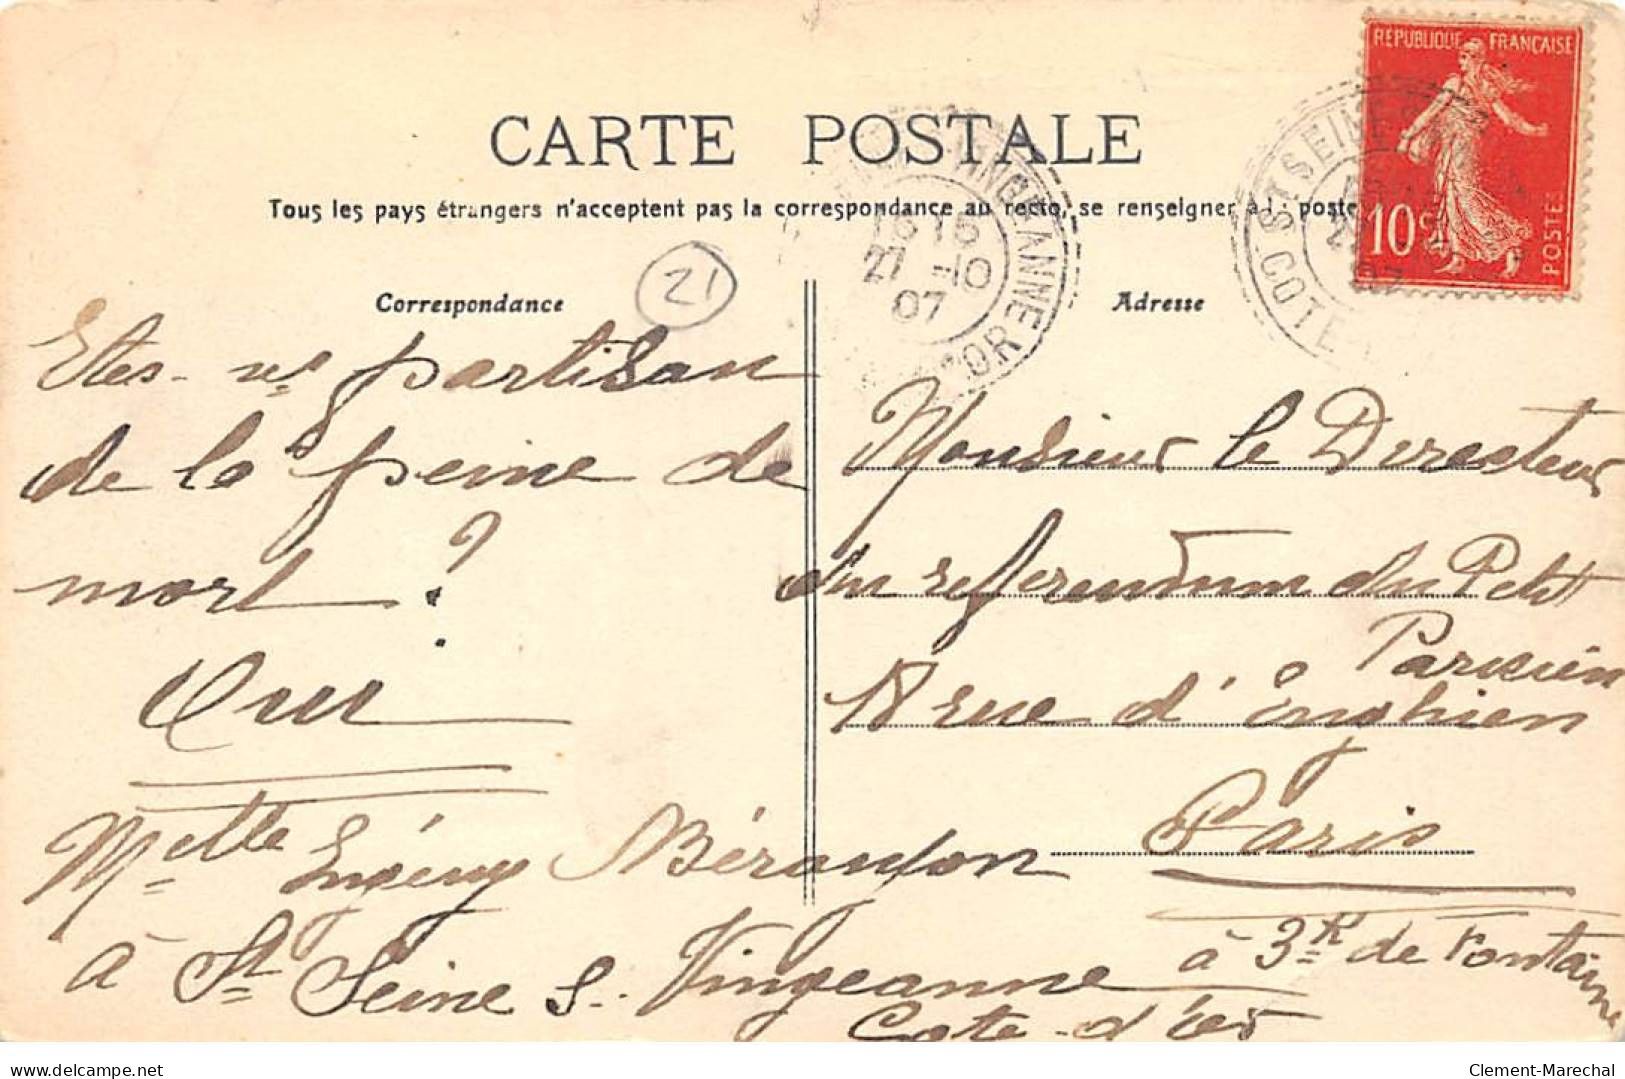 REPUBLIQUE FRANÇAISE
10c
POSTES
CARTE POSTALE
Tous les pays étrangers n'acceptent pas la correspondance au recto, se renseigner à la poste
ST SEINE
COTE
VINGEANNE
D'OR
16 15
27 -10
07
21
Correspondance
Etes-vs partisan
de la peine de
mort ?
Oui
Melle
à St Seine s. Vingeanne
Cote-d'or
Adresse
Monsieur le Directeur
du referendum du Petit
Parisien
18 rue d'Enghien
Paris
à 3 K de Fontaine
delcampe.net
Clement-Marechal